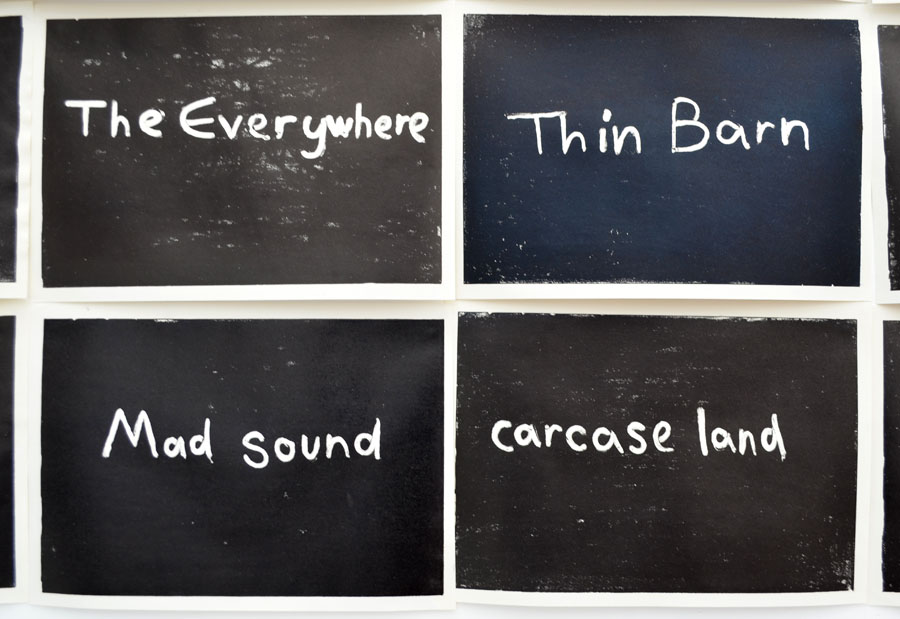 The Everywhere
Thin Barn
Mad sound
carcase land